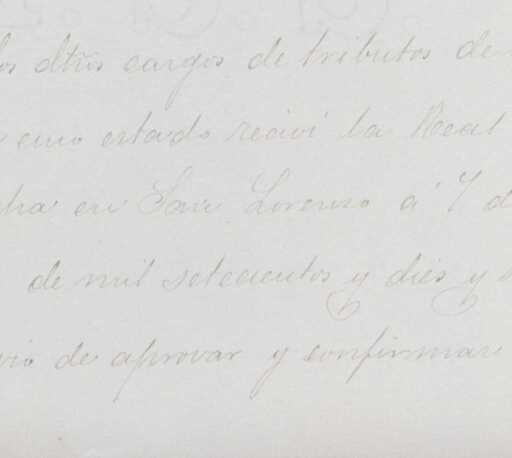 los dtños cargos de tributos de
en cuio estado reciví la Real
cha en San Lorenzo á 7 d
de mil setecientos y dies y
vio de aprovar y confirmar